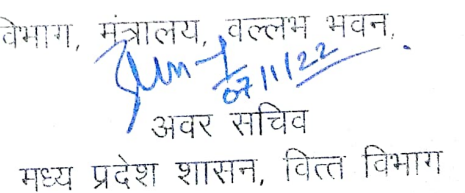 विभाग, मंत्रालय, वल्लभ भवन,
07/11/22
अवर सचिव
मध्य प्रदेश शासन, वित्त विभाग